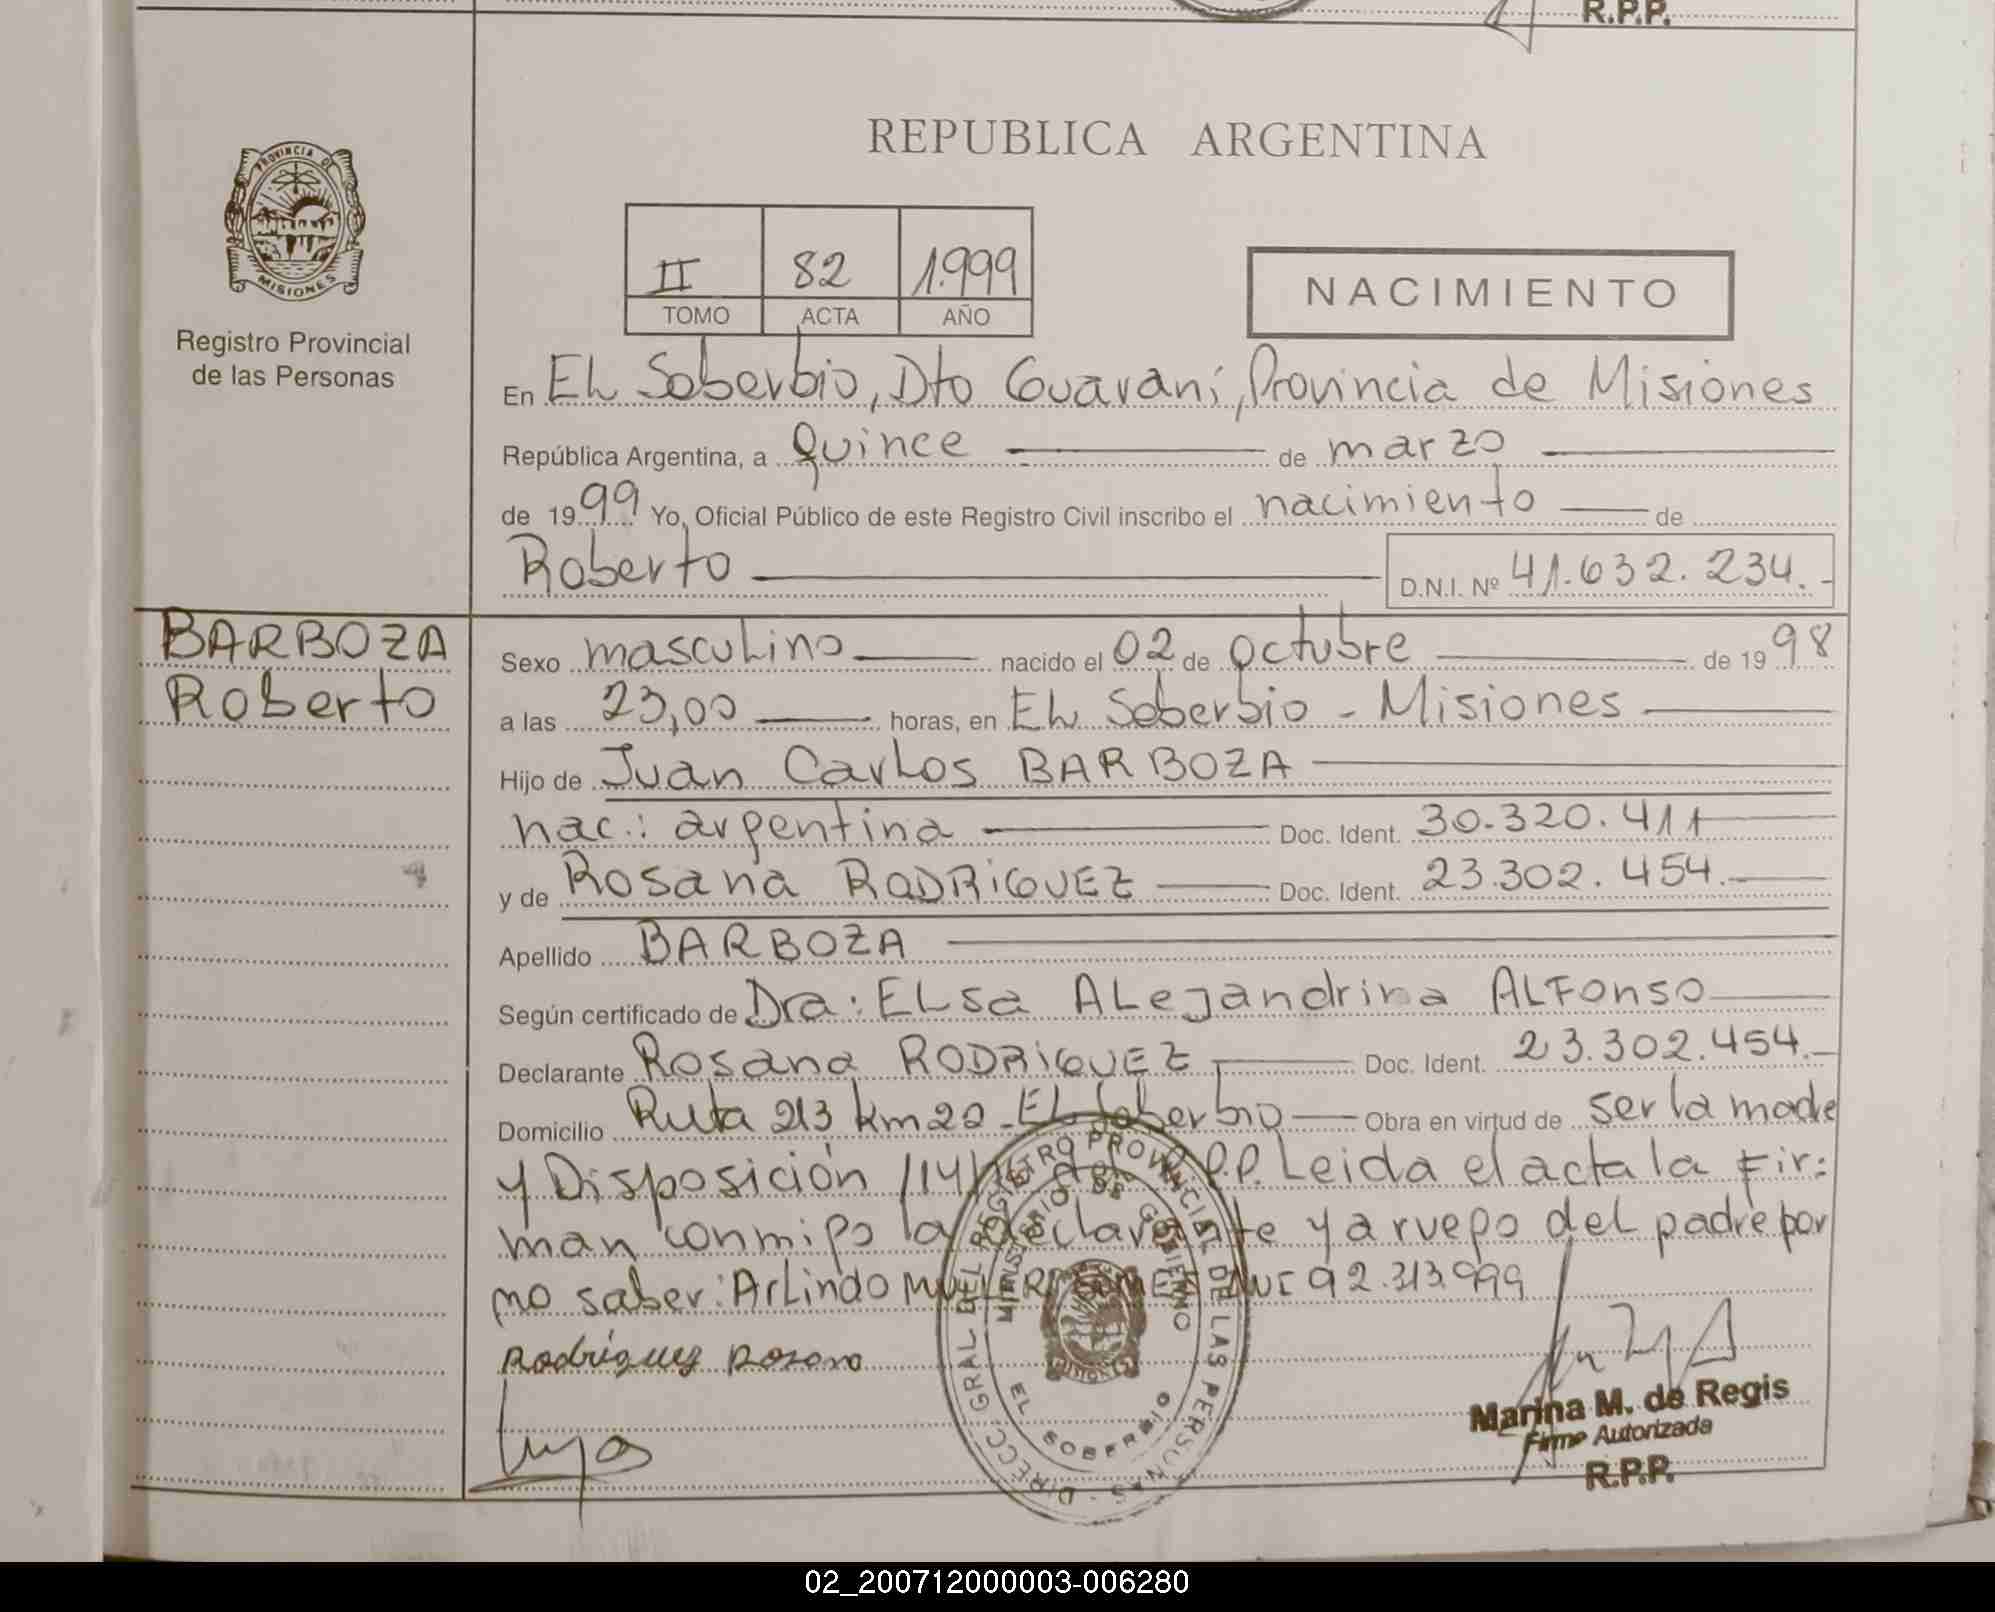 R.P.P.
REPUBLICA ARGENTINA
PROVINCIA DE
MISIONES
Registro Provincial
de las Personas
II 82 1.999
TOMO ACTA AÑO
NACIMIENTO
En EL Soberbio, Dto Guaraní, Provincia de Misiones
República Argentina, a quince de marzo
de 1999 Yo, Oficial Público de este Registro Civil inscribo el nacimiento de
Roberto D.N.I. Nº 41.632.234.-
BARBOZA
Roberto
Sexo masculino nacido el 02 de octubre de 1998
a las 23,00 horas, en EL Soberbio - Misiones
Hijo de Juan Carlos BARBOZA
nac.: argentina Doc. Ident. 30.320.411
y de Rosana RODRIGUEZ Doc. Ident. 23.302.454.
Apellido BARBOZA
Según certificado de Dra: ELsa ALejandrina ALFonso
Declarante Rosana RODRIGUEZ Doc. Ident. 23.302.454.
Domicilio Ruta 213 km 22 - EL Soberbio Obra en virtud de ser la madre
y Disposición R.P.P. Leida el acta la Fir=
man conmigo la declarante y a ruego del padre por
no saber: Arlindo 92.313.999
Rodriguez Rosana
DIRECC. GRAL DEL REGISTRO PROVINCIAL DE LAS PERSONAS
MINISTERIO DE GOBIERNO
MISIONES
EL SOBERBIO
Marina M. de Regis
Firma Autorizada
R.P.P.
02_200712000003-006280